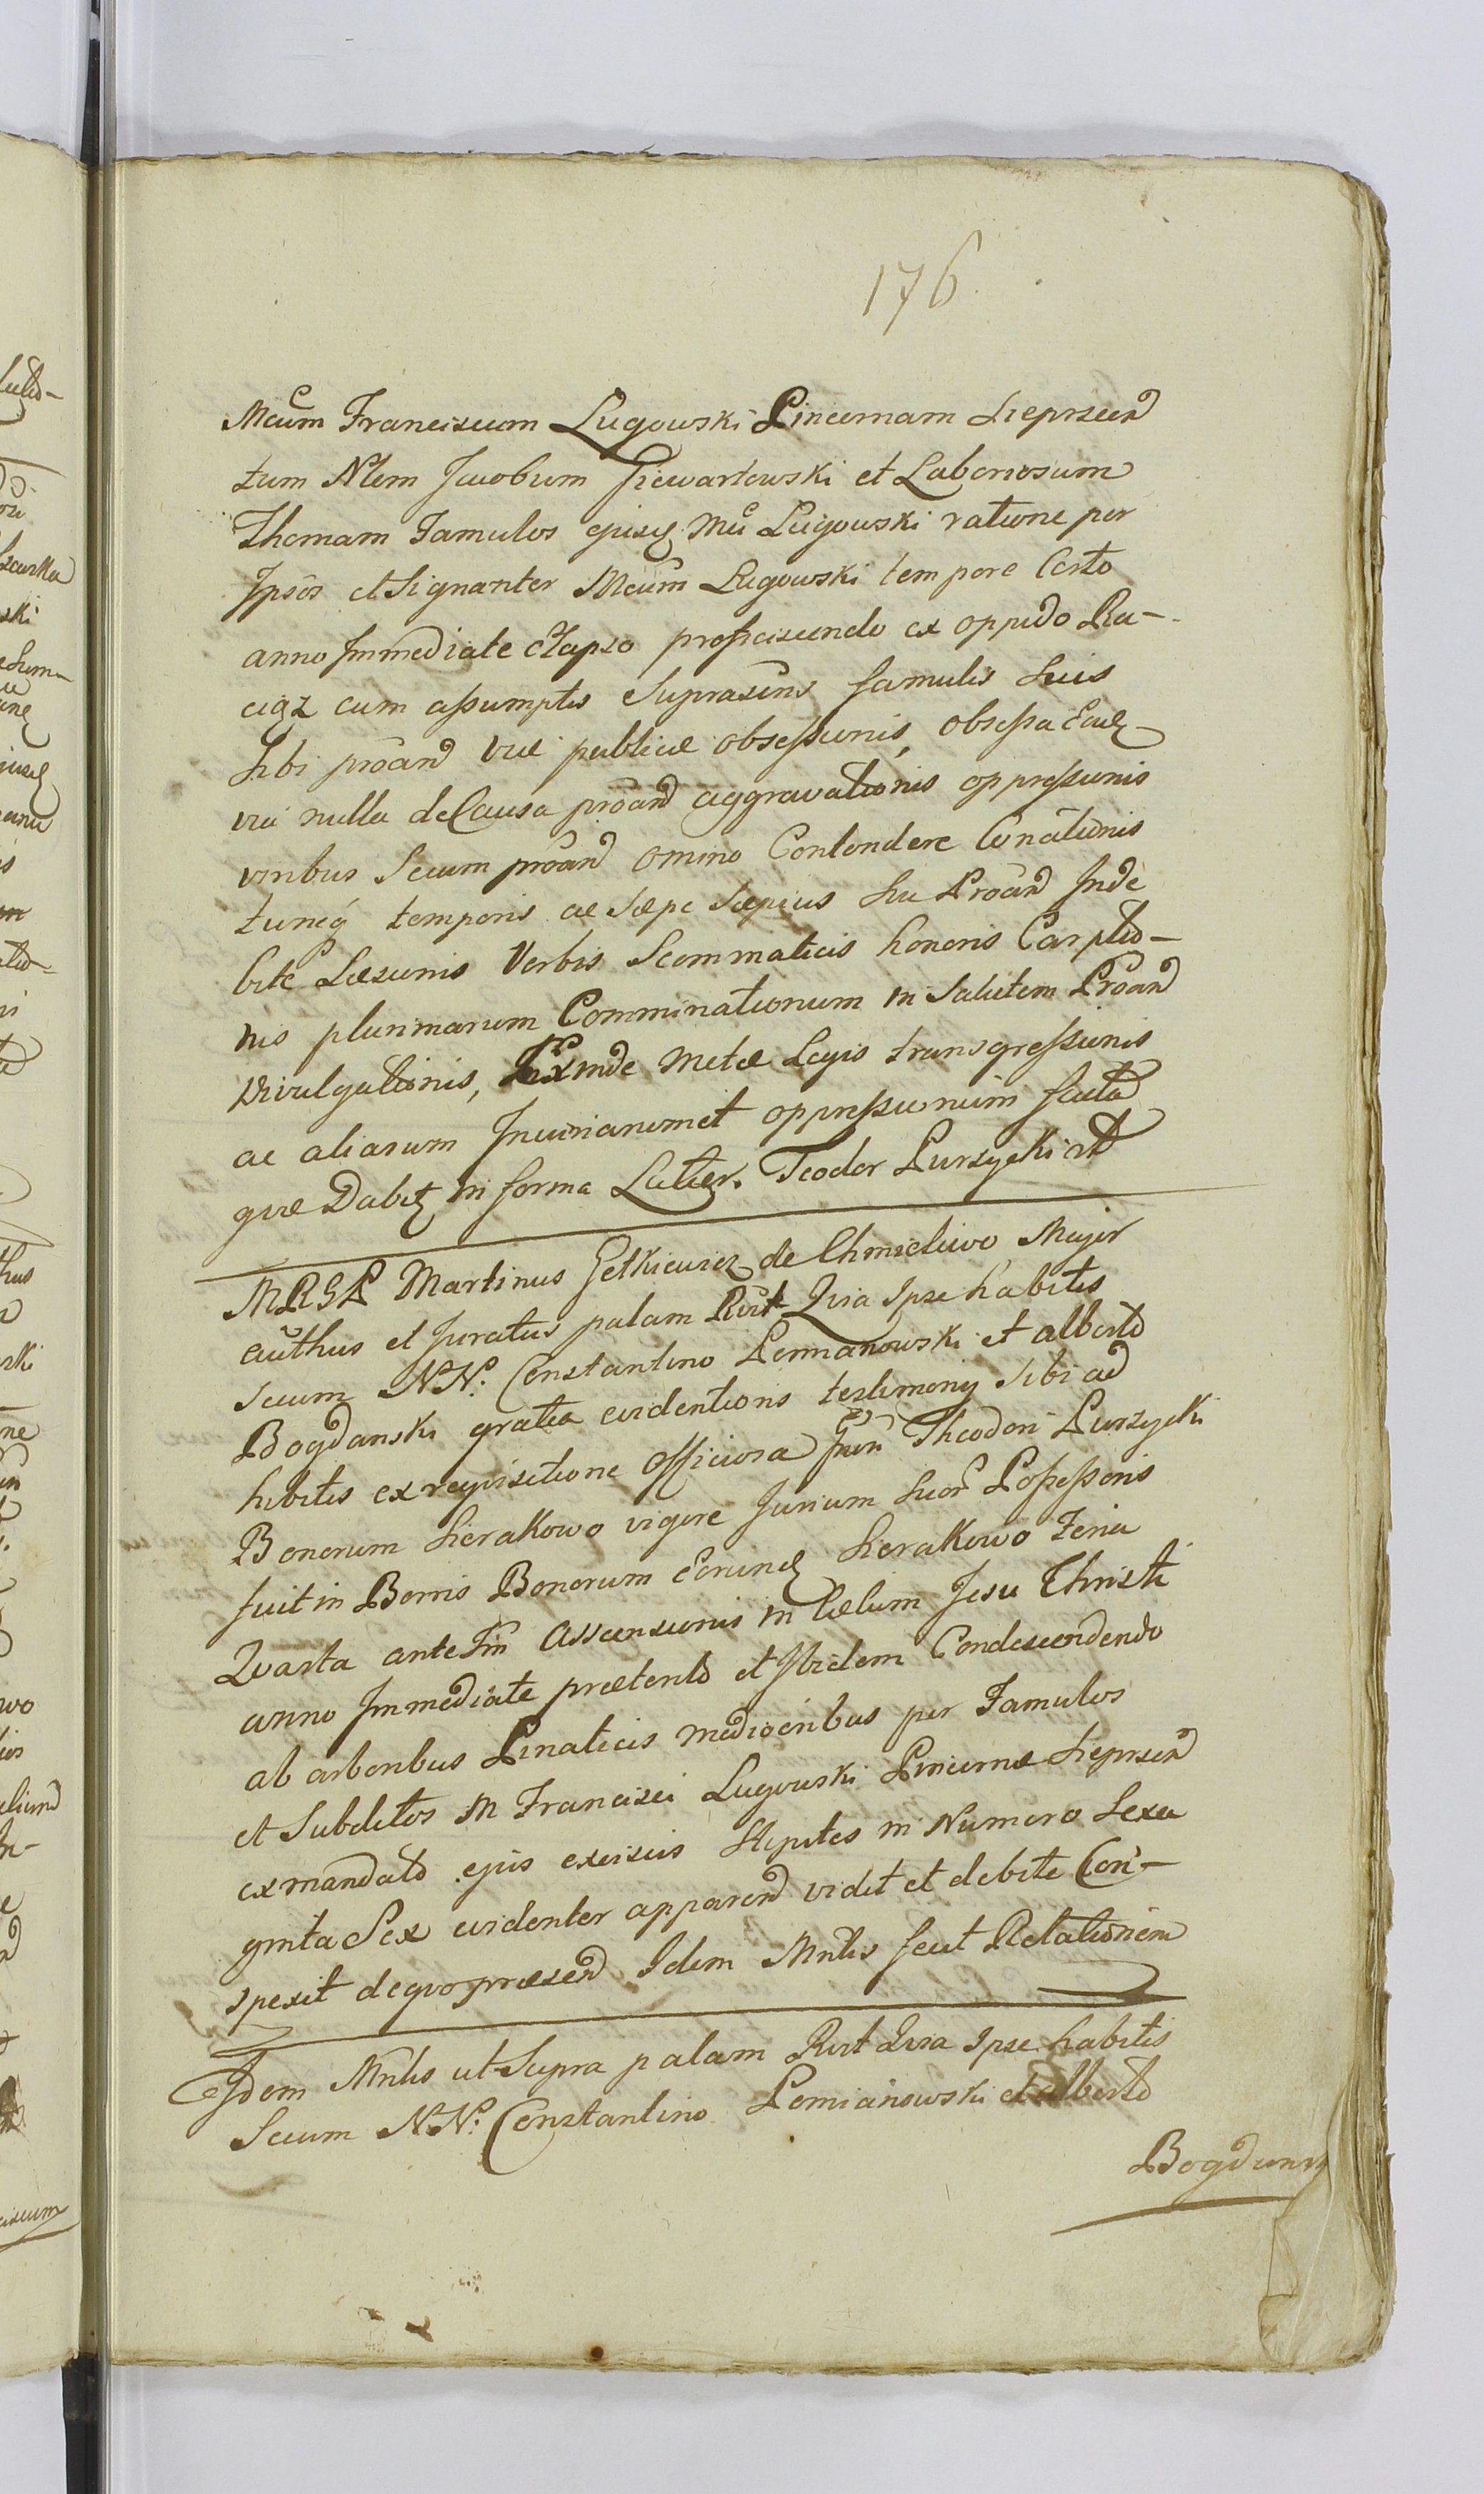 176
Mcum Franciscum Lugowski Pincernam Sieprscen
tum Nlem Jacobum Giewartowski et Laboriosum
Thomam Famulos ejusq Mci Lugowski ratione per
Ipsos et Signanter Mcum Lugowski tempore Certo
anno Immediate Elapso proficiscendo ex oppido Ra-
ciąz cum assumptis Suprascris famulis Suis
Sibi proand viae publicae obsessionis, obsessa Eaq
via nulla de Causa proand aggravationis oppressionis
viribus Secum proand omino Contendere Conationis
tuncq temporis ac Saepe Saepius Su Proand Inde
bite Laesionis Verbis Scommaticis honoris Carptio-
nis plurimarum Comminationum in Salutem Proand
Divulgationis, Exinde Metae Legis transgressionis
ac aliarum Inuriarumet oppressionum feutd
quae Dabit in forma Latier. Teodor Purzycki mp
MRGP Martinus Zetkiewicz de Chmielewo Major
authus et Juratus palam Rcit Quia Ipse habitis
secum NN. Constantino Pemianowski et alberto
Bogdanski gratia evidentioris testimony Sibi ad
hibitis ex reqvisitione officiosa Gnri Theodori Purzycki
Bonorum Sierakowo vigore Jurium Suor Possessoris
fuit in Bonis Bonorum Eorundq Sierakowo Feria
Qvarta ante Fm Ascensionis in Caelum Jesu Christi
anno Immediate praeterito et Ibidem Condescendendo
ab arboribus Pinaticis mediocribus per Famulos
et Subditos M Francisci Lugowski Pincernae Sieprscen
ex mandato ejus excisis Stipites in Numero Sexa
ginta Sex evidenter apparen vidit et debite Con-
spexit de quo praesen Idem Mntlis fecit Relationem
Idem Mntlis ut Supra palam Rcit Quia Ipse habitis
Secum NN. Constantino Pemianowski et alberto
Bogdans